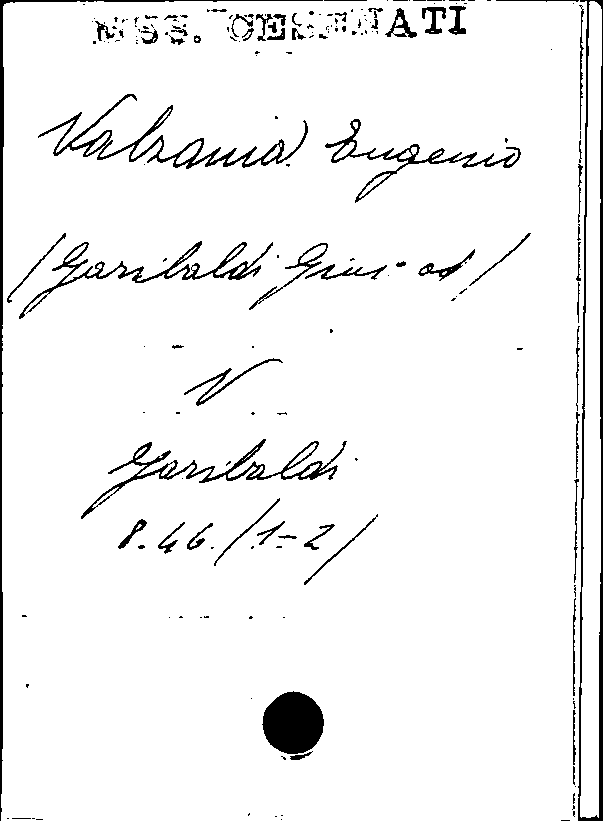 MSS. CESENATI
Valzania Eugenio
(Garibaldi Gius. ad)
V
Garibaldi
8.46.(1-2)